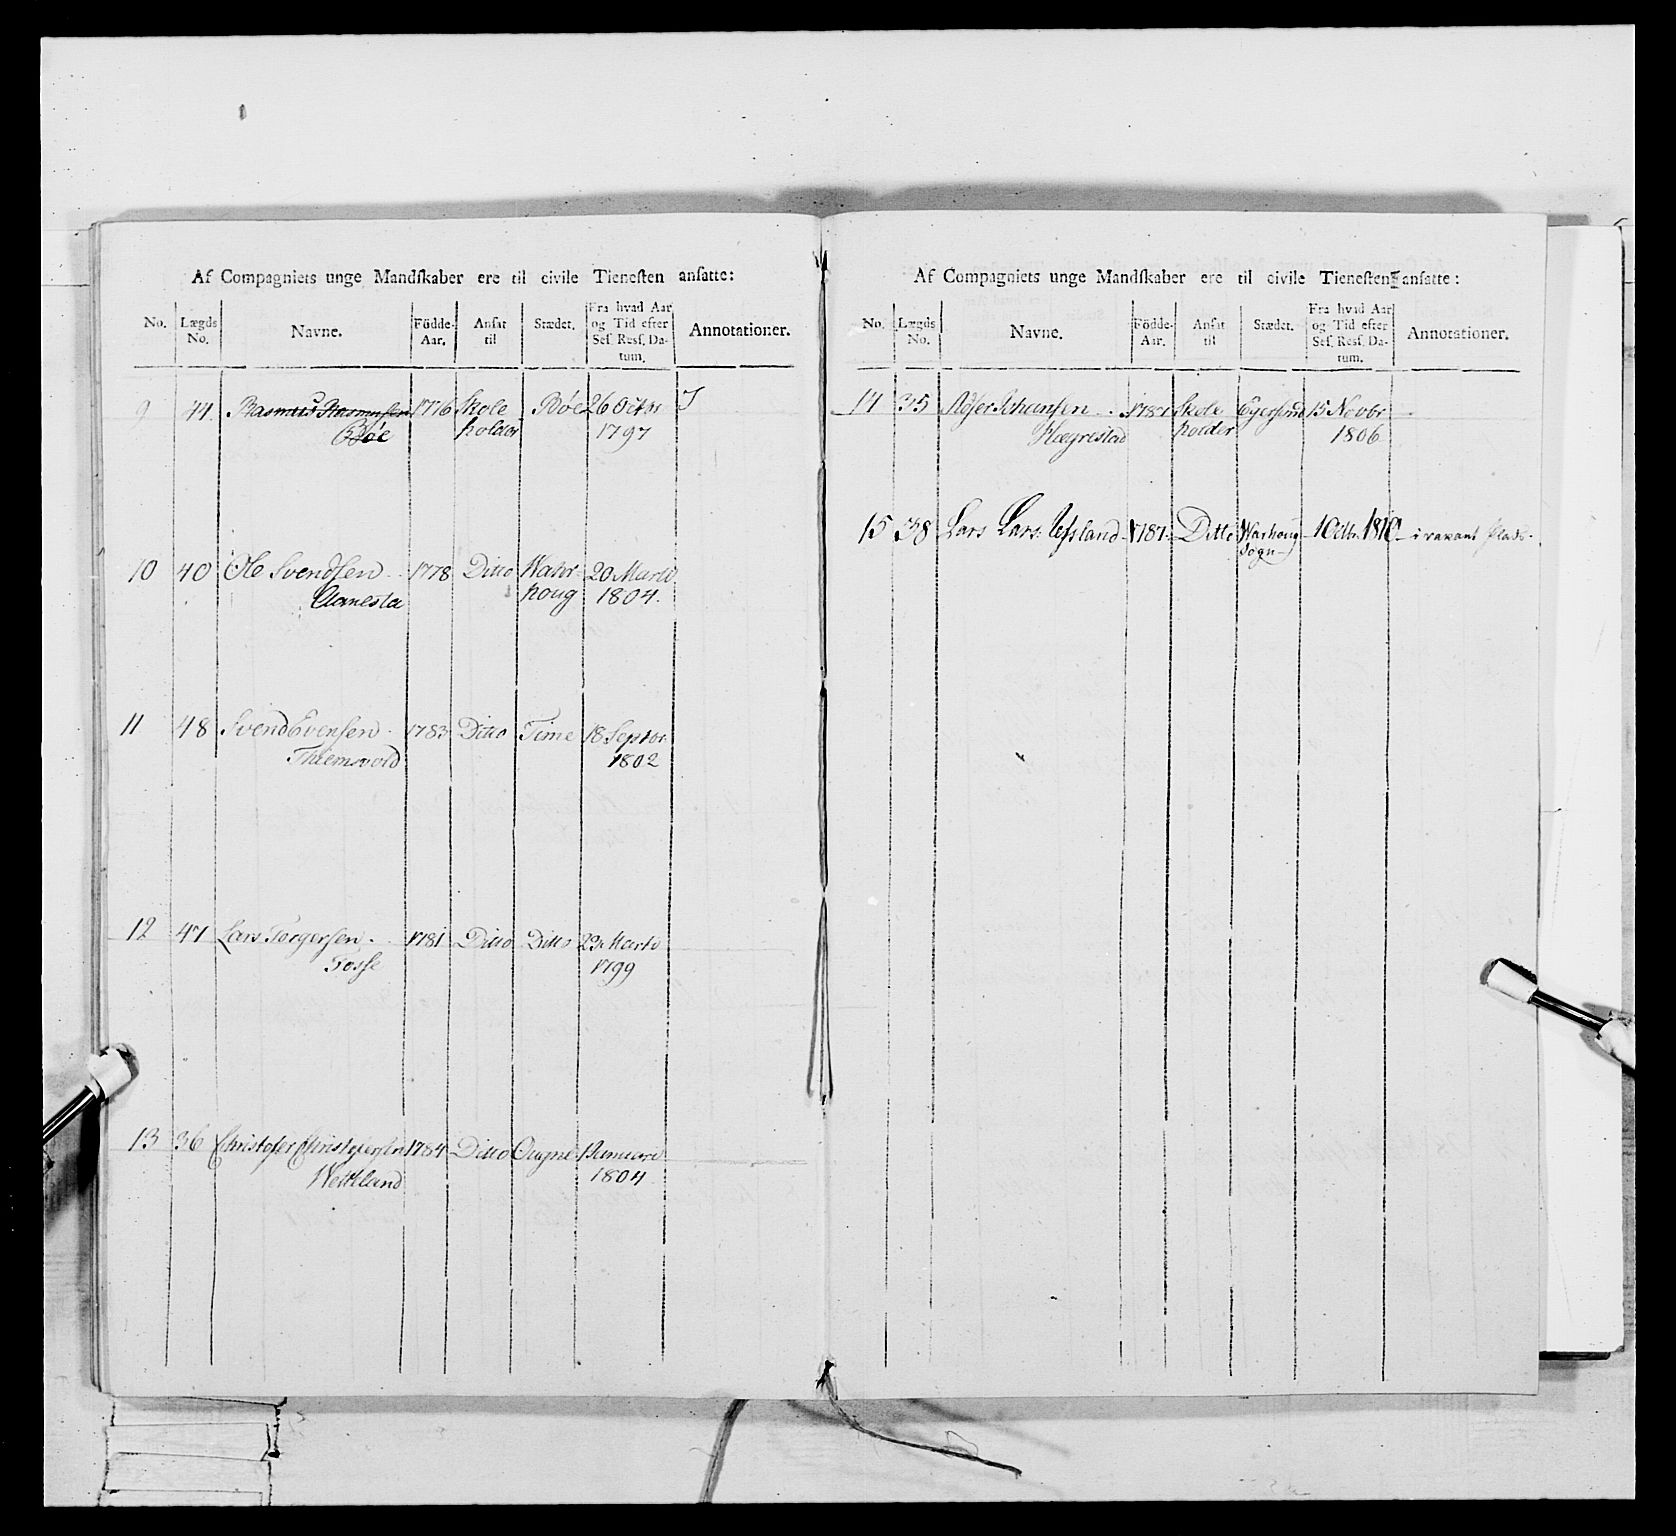 Af Compagniets unge Mandſkaber ere til civile Tieneſten anſatte:
No. Lægds No. Navne. Födde-Aar. Anſat til Stædet. Fra hvad Aar og Tid efter Seſ. Reſſ. Datum. Annotationer.
9 44. Rasmus Rasmusſen 1776 Skole Böe 26 Octbr
Böe holder 1797
10 40 Ole Svendſen 1778 Ditto Wahr- 20 Marti
Aanesta houg 1804.
11 48 Svend Evenſen 1783 Ditto Time 18 Septbr
Thiemsvold 1802
12 47 Lars Torgerſen 1781 Ditto Ditto Marti
Tosſe 1799
13 36 Christofer Christoferſen 1784 Ditto Ougne Januari
Wettland 1804
Af Compagniets unge Mandſkaber ere til civile Tieneſten anſatte:
No. Lægds No. Navne. Födde-Aar. Anſat til Stædet. Fra hvad Aar og Tid efter Seſ. Reſſ. Datum. Annotationer.
14 35 Johanſen Skole Egersund 15 Novbr
Hægrestad holder 1806
15 38 Lars Lars. 1787 Ditto Warhoug 1 Octbr. 1810 i vacant Plads.
Sogn